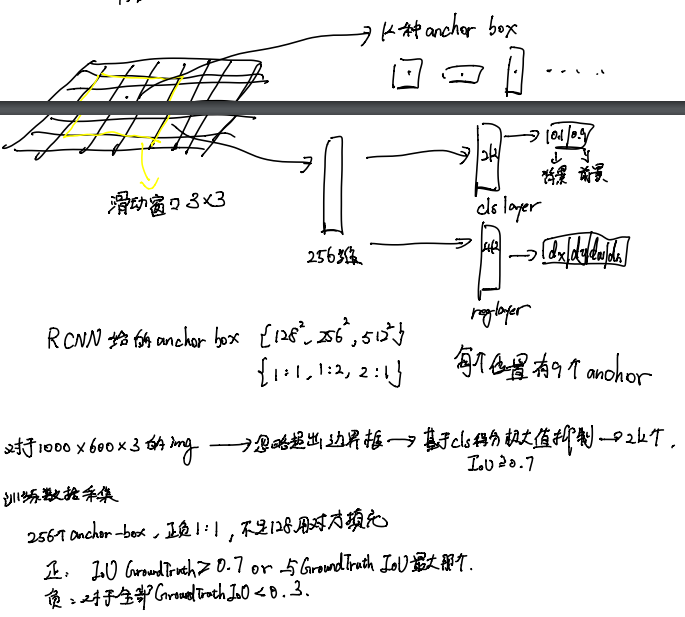 K种anchor box
滑动窗口 3×3
256维
2k
cls layer
0.1 0.9
背景 前景
4k
reg layer
dx dy dw dh
RCNN 给的 anchor box {128², 256², 512²}
{1:1, 1:2, 2:1}
每个位置有9个 anchor
对于1000×600×3 的 img → 忽略超出边界框 → 基于cls得分极大值抑制 → 2k个,
IoU≥0.7
训练数据采集
256个anchor-box, 正负1:1, 不足128用对方填充
正: IoU GroundTruth≥0.7 or 与GroundTruth IoU最大那个.
负: 对于全部GroundTruth IoU<0.3.